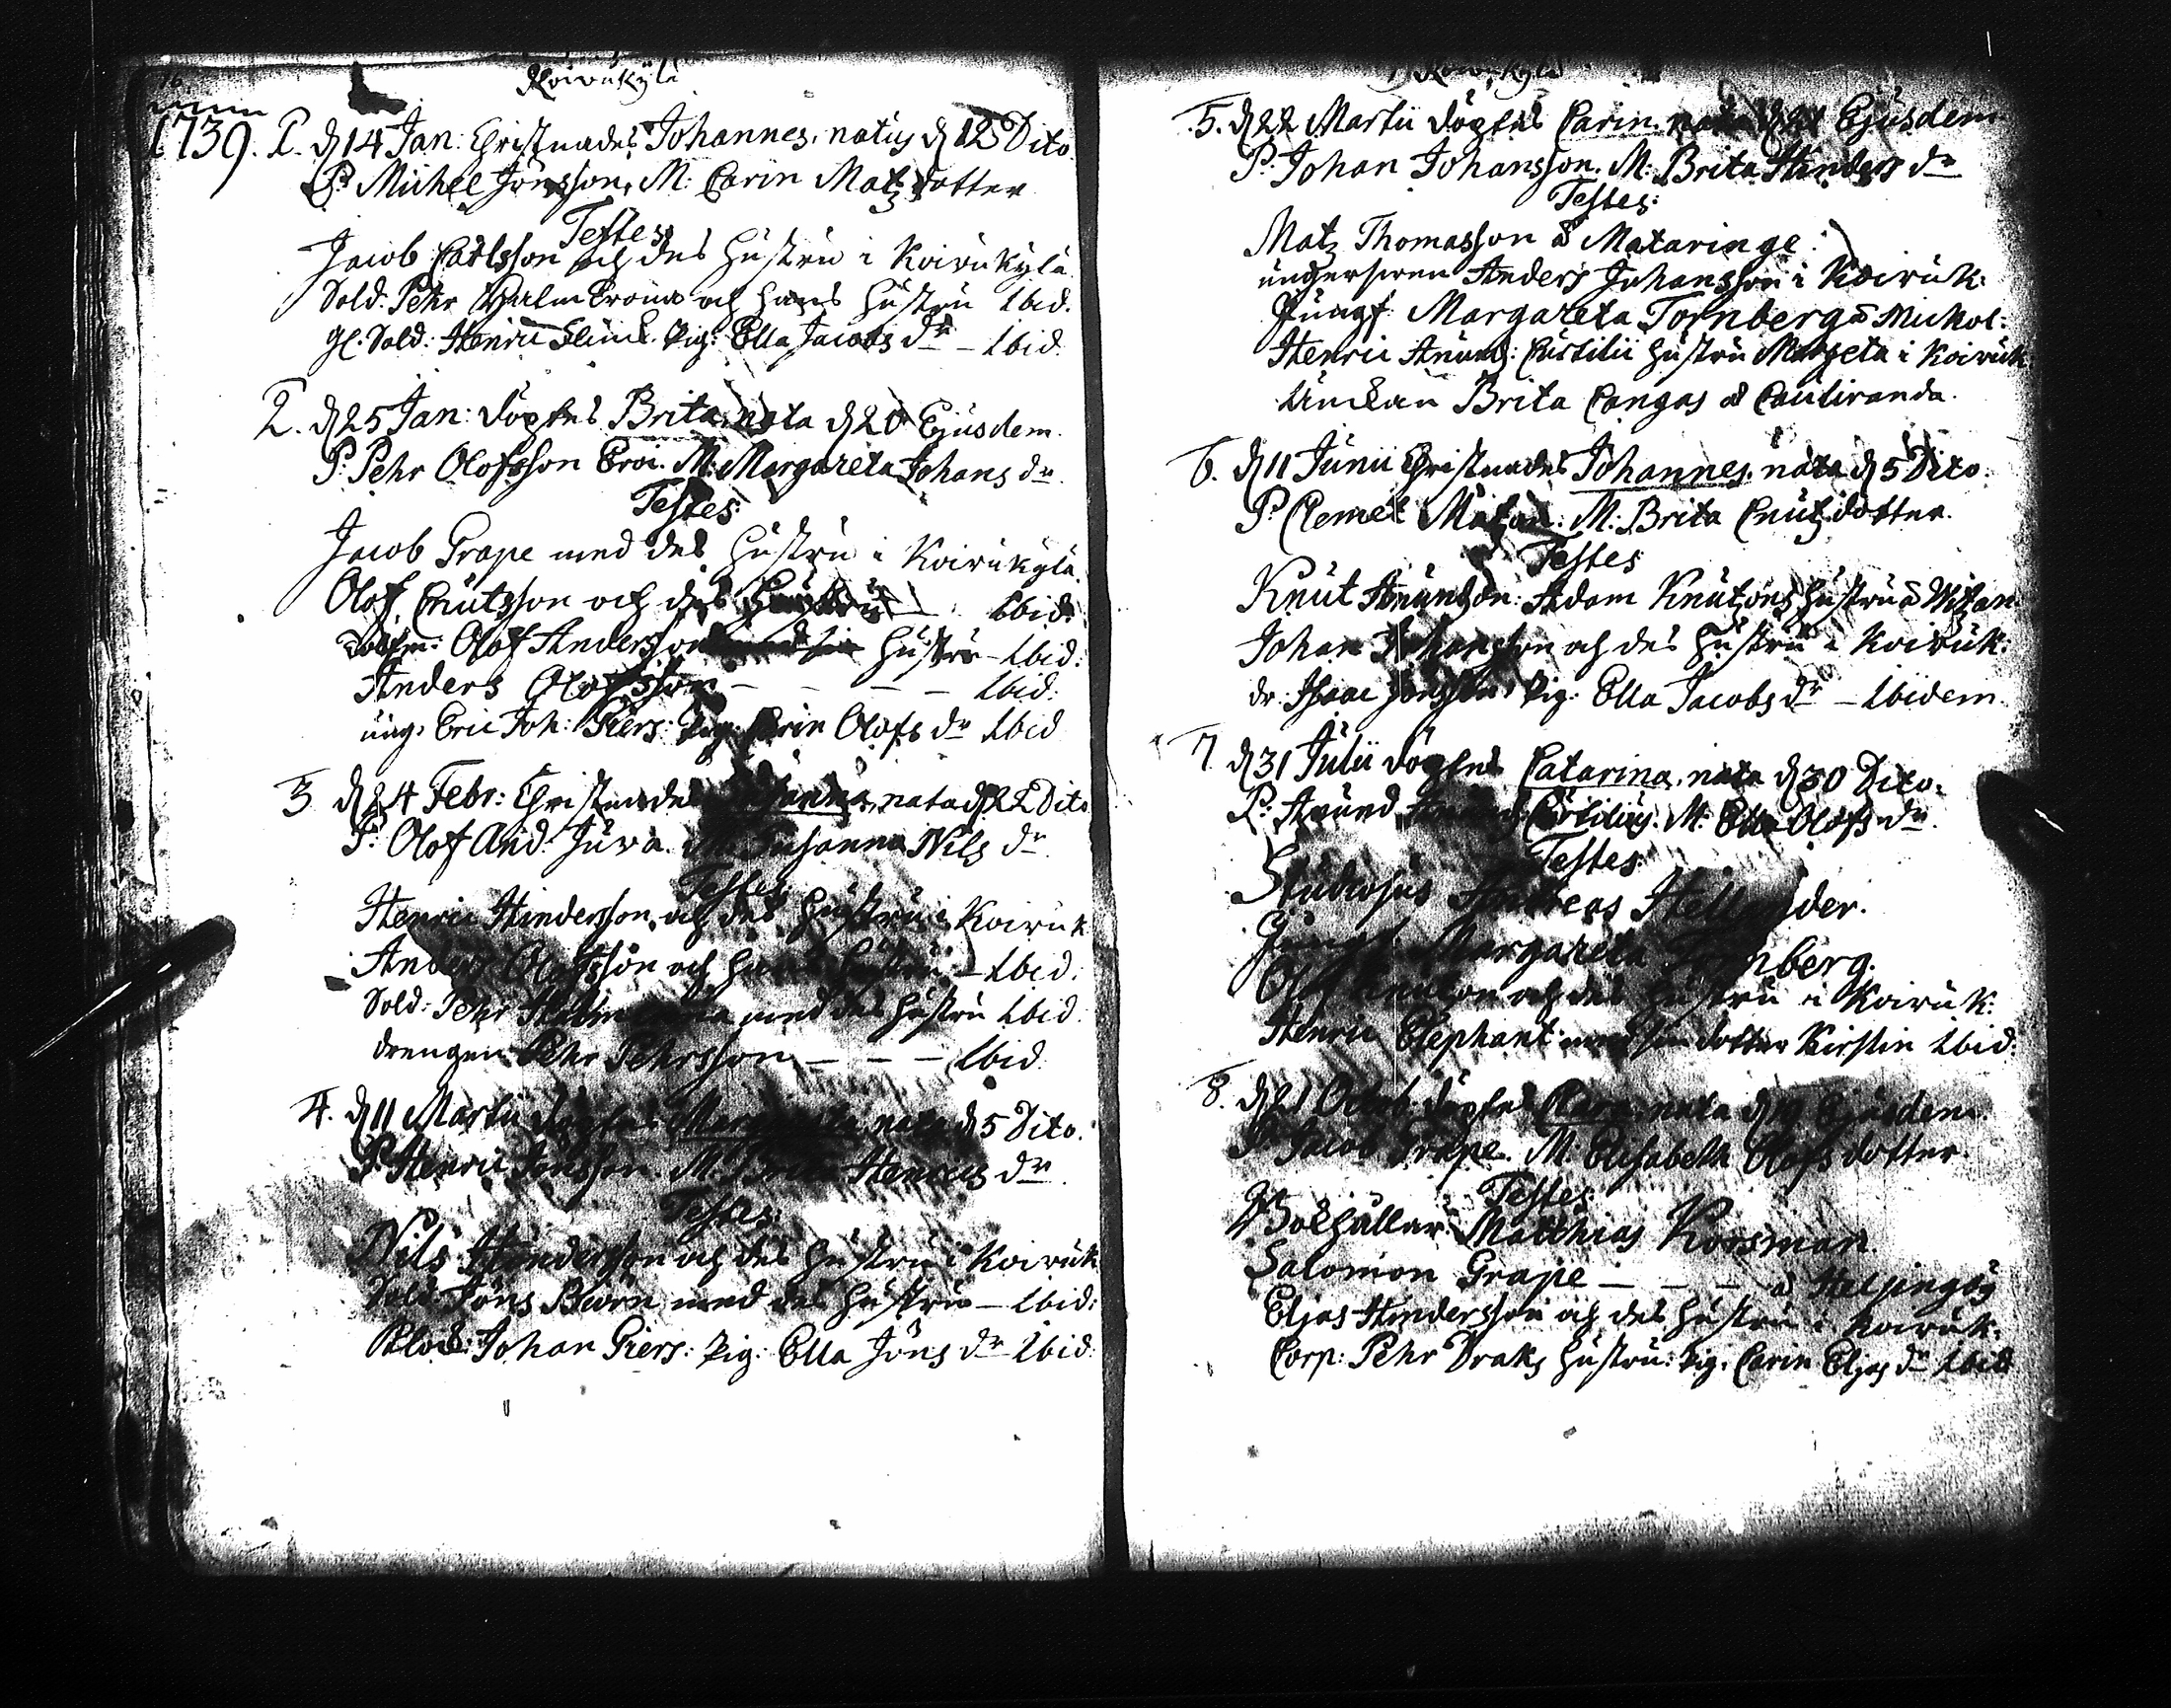 Koivukylä
1739. 1. d 14 Jan: Christnades Johannes, natus d 12 Dito
P: Michel Jönsson, M: Carin Matz dotter
Testes
Jacob Carlsson och des Hustru i Koivukylä
Sold: Pehr och hans Hustru Ibid.
Gl. Sold: Henric Pig: Ella Jacobs dr – Ibid.
2. d 25 Jan: döptes Brita, nata d 20 Ejusdem.
P: Pehr Olofsson Croi. M: Margareta Johans dr
Testes
Jacob Grape med des Hustru i Koivukylä.
Olof Cnutsson och des Hustru Ibid:
Olof Andersson Hustru – Ibid:
Anders Olofsson – – – – Ibid:
ung: Eric Joh: Piers: Pig: Carin Olofs dr Ibid
3 d 24 Febr: Christnades nata d 22 Dito
P: Olof And: Juva. M: Susanna Nils dr
Testes
Henric Hindersson, och des Hustru i Koivuk
Anders Olofsson och hans Hustru – Ibid:
Sold: Pehr med des Hustru Ibid:
drengen Pehr Pehrsson – – – Ibid.
4. d 11 Martii döptes Margareta, nata d 5 Dito.
P: Henric Jönsson. M: Brita Henrics dr
Testes
Nils Hindersson och des Hustru i Koivuk
Sold Jöns Biörn med des Hustru – Ibid:
Johan Piers: Pig: Ella Jöns dr Ibid:
Koivukylä
5. d 22 Martii döptes Carin, nata d 21 Ejusdem
P: Johan Johansson. M: Brita Hinders dr
Testes:
Matz Thomasson å Mataringe
ungersven Anders Johansson i Koivuk:
Jungf: Margareta Tornberg å Mickol:
Henric Anund: Curtilii Hustru Margeta i Koivuk
Enckan Brita Cangas å Cauliranda.
6. d 11 Junii Christnades Johannes, nata d 5 Dito.
P: Clemet Matzon: M: Brita Cnutz dotter.
Testes
Knut Anundzon: Adam Knutzons Hustru å Witan.
Johan Johansson och des Hustru i Koivuk.
dr: Isaac Jönsson, Pig: Ella Jacobs dr – Ibidem.
7 d 31 Julii döptes Catarina, nata d 30 Dito.
P: Anund Curtilius. M: Ella Olofs dr.
Testes
Studiosus Andreas Hellander.
Jungf: Margareta Tornberg.
Olof Cnutzon och des Hustru i Koivuk:
Henric Elephant med sin dotter Kirstin Ibid:
8. d 21 Octob: döptes Clara, nata d 19 Ejusdem.
P: Jacob Grape. M: Elisabeth Olofs dotter.
Testes
Bokhållar: Matthias Korsman.
Salomon Grape – – – å Helsingby
Eljas Hindersson och des Hustru i Koivuk:
Corp: Pehr Draks Hustru: Pig: Carin Eljas dr Ibid